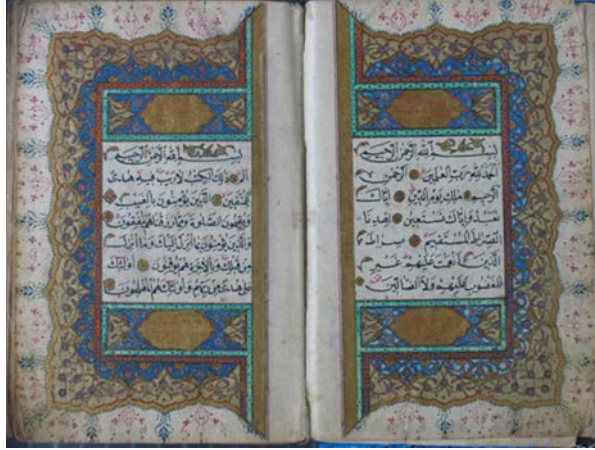 بسم الله الرحمن الرحيم
الحمد لله رب العلمين الرحمن
الرحيم ملك يوم الدين اياك
نعبد واياك نستعين اهدنا
الصراط المستقيم صراط
الذين انعمت عليهم غير
المغضوب عليهم ولا الضالين
بسم الله الرحمن الرحيم
الم ذلك الكتب لا ريب فيه هدى
للمتقين الذين يؤمنون بالغيب
ويقيمون الصلوة ومما رزقناهم ينفقون
والذين يؤمنون بما انزل اليك وما انزل
من قبلك وبالاخرة هم يوقنون اولئك
على هدى من ربهم واولئك هم المفلحون